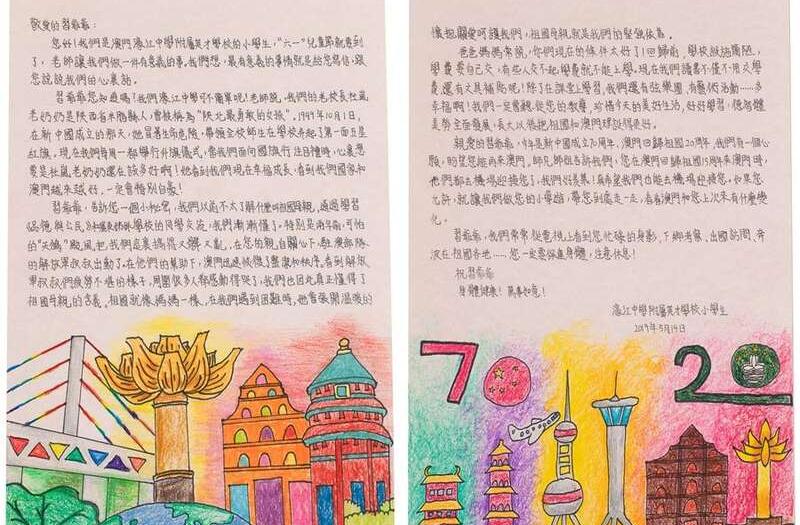 敬爱的习爷爷:
您好!我们是澳门濠江中學附屬英才學校的小學生,“六一”兒童節就要到
了,老師讓我們做一件有意義的事。我們想,最有意義的事情就是給您寫信,跟
您說說我們的心裏話。
習爺爺您知道嗎?我們濠江中學可不簡單呢!老師說,我們的老校長杜嵐
老奶奶是陝西省米脂縣人,曾被稱為“陝北最勇敢的女孩”。1949年10月1日,
在新中國成立的那天,她冒著生命危險,帶領全校師生在學校升起了第一面五星
紅旗。現在我們每周一都舉行升旗儀式,當我們面向國旗行注目禮時,心裏想
要是杜嵐老奶奶還在該多好啊!她看到我們現在幸福成長,看到我們國家和
澳門越來越好,一定會特別自豪!
習爺爺,告訴您一個小秘密,我們以前不太了解什麼叫祖國母親,通過學習
《品德與公民》和學校的同學交流,我們漸漸懂了。特別是兩年前,可怕
的“天鴿”颱風把我們這裏搞得又髒又亂,在您的親自關心下,駐澳部隊
的解放軍叔叔出動了。在他們的幫助下,澳門迅速恢復了整潔和秩序。看到解放
軍叔叔們疲勞不堪的樣子,周圍很多人都感動得哭了,我們也因此真正懂得了
祖國母親的含義。祖國就像媽媽一樣,在我們遇到困難時,她會張開溫暖的
懷抱關愛呵護我們,祖國母親就是我們的堅強依靠。
爸爸媽媽常說,你們現在的條件太好了!回歸前,學校設施簡陋,
學費要自己交,有些人交不起學費就不能上學。現在我們讀書不僅不用交學
費,還有文具補貼呢!除了在課堂上學習,我們還有弦樂團,有藝術活動……多
幸福啊!我們一定會聽從您的教導,珍惜今天的美好生活,好好學習,德智體
美勞全面發展,長大以後把祖國和澳門建設得更好。
親愛的習爺爺,今年是新中國成立70周年,澳門回歸祖國20周年,我們有一個心
願,盼望您能再來澳門。師兄師姐告訴我們,您在澳門回歸祖國15周年來澳門時,
他們都去機場迎接您了,我們好羨慕!真希望我們也能去機場迎接您。如果您
允許,就讓我們做您的小導遊,帶您到處走一走,看看澳門和您上次來有什麼變
化。
習爺爺,我們常常從電視上看到您忙碌的身影,下鄉扶貧、出國訪問、奔
波在祖國各地……您一定要保重身體,注意休息!
祝習爺爺
身體健康!萬事如意!
濠江中學附屬英才學校小學生
2019年5月19日
70
20